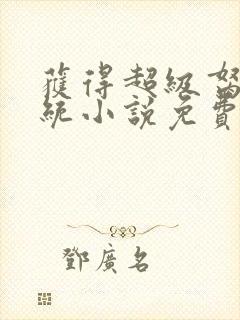 獲得超級
統小說免費
鄧廣名